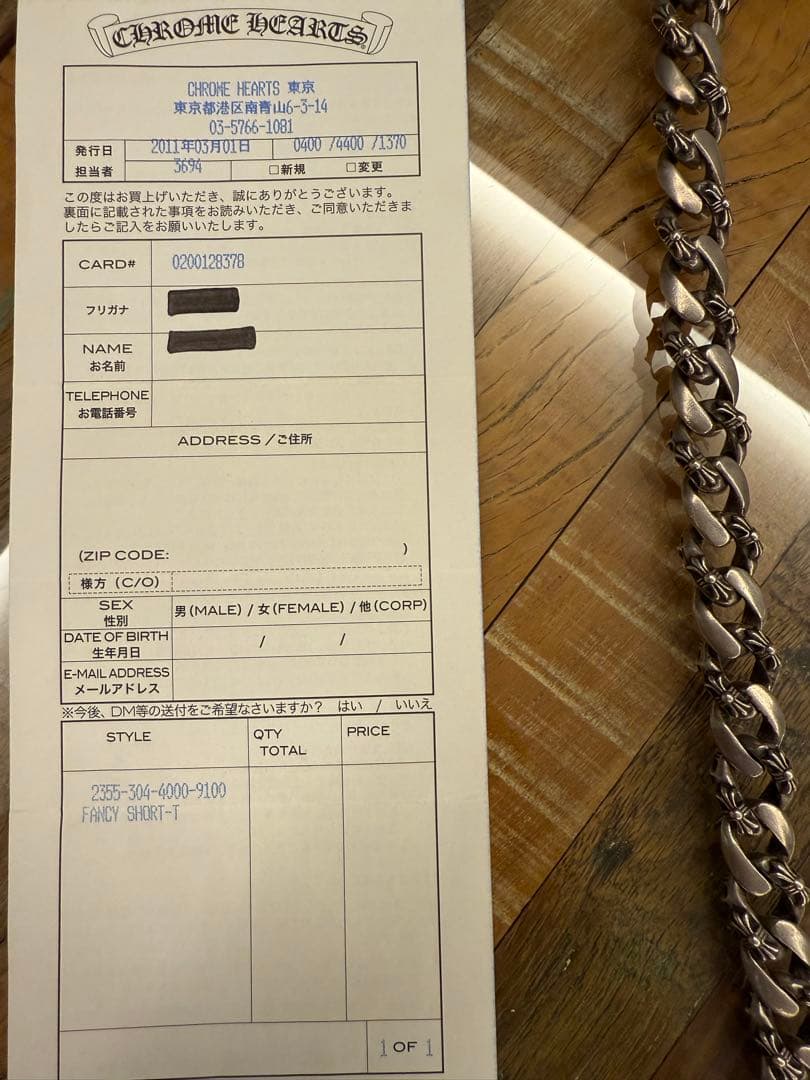 CHROME HEARTS
CHROME HEARTS 東京
東京都港区南青山6-3-14
03-5766-1081
発行日 2011年03月01日 0400 /4400 /1370
担当者 3694 □新規 □変更
この度はお買上げいただき、誠にありがとうございます。
裏面に記載された事項をお読みいただき、ご同意いただきま
したらご記入をお願いいたします。
CARD# 0200128378
フリガナ
NAME
お名前
TELEPHONE
お電話番号
ADDRESS /ご住所
(ZIP CODE: )
様方 (C/O)
SEX
性別
男(MALE) / 女(FEMALE) / 他(CORP)
DATE OF BIRTH
生年月日
/ /
E-MAIL ADDRESS
メールアドレス
※今後、DM等の送付をご希望なさいますか? はい / いいえ
STYLE
QTY
TOTAL
PRICE
2355-304-4000-9100
FANCY SHORT-T
1 OF 1